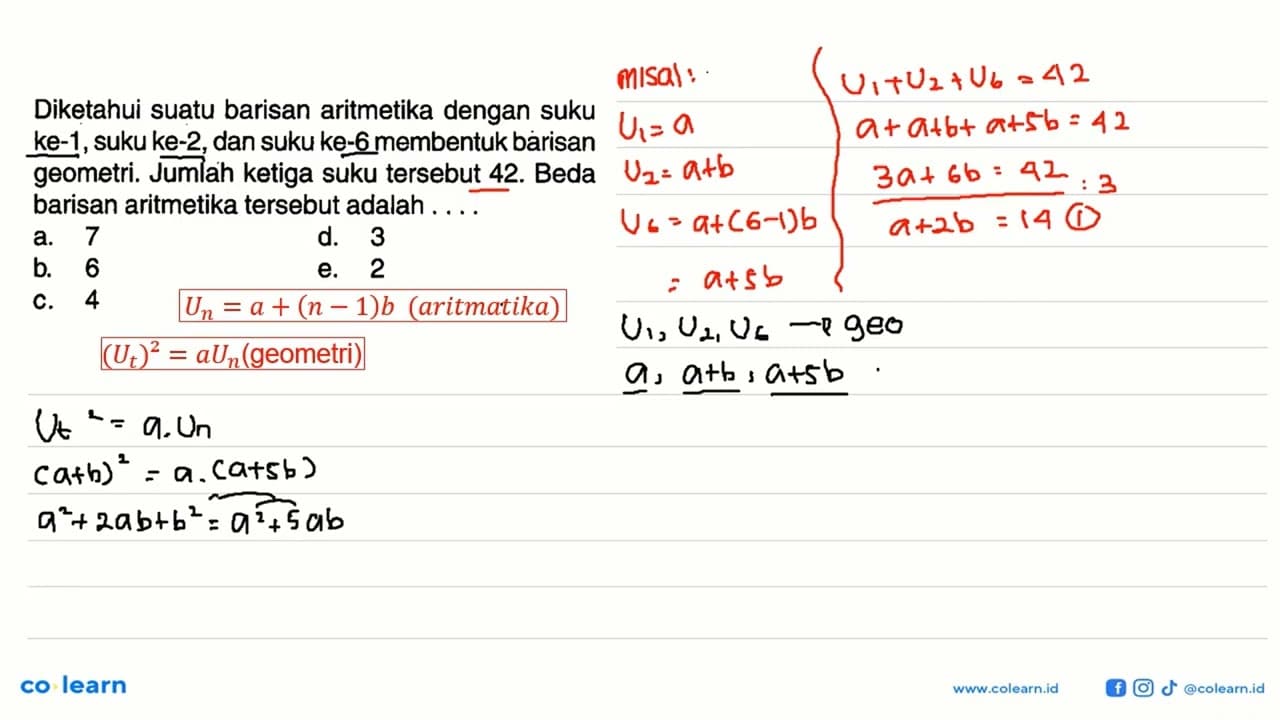 Diketahui suatu barisan aritmetika dengan suku
ke-1, suku ke-2, dan suku ke-6 membentuk barisan
geometri. Jumlah ketiga suku tersebut 42. Beda
barisan aritmetika tersebut adalah . . . .
a. 7 d. 3
b. 6 e. 2
c. 4
Uₙ = a + (n − 1)b (aritmatika)
(Uₜ)² = aUₙ(geometri)
Uₜ² = a.Uₙ
(a+b)² = a.(a+5b)
a²+2ab+b² = a²+5ab
misal:
U₁ = a
U₂ = a+b
U₆ = a+(6-1)b
= a+5b
U₁+U₂+U₆ = 42
a+a+b+a+5b = 42
3a+6b = 42 :3
a+2b = 14 ①
U₁, U₂, U₆ → geo
a, a+b, a+5b
co learn
www.colearn.id
@colearn.id